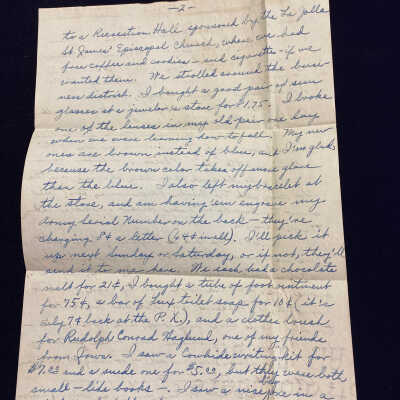 —2—
to a Recreation Hall sponsored by the La Jolla
St. James' Episcopal Church, where we had
free coffee and cookies – and cigarettes – if we
wanted them. We strolled around the busi-
ness district. I bought a good pair of sun
glasses at a jeweler's store for $1.75. I broke
one of the lenses in my old pair one day
when we were learning how to fall. My new
ones are brown instead of blue, and I'm glad,
because the brown color takes off more glare
than the blue. I also left my bracelet at
the store, and am having 'em engrave my
Army Serial Number on the back – they're
charging 8¢ a letter (64¢ in all). I'll pick it
up next Sunday or Saturday, or if not, they'll
send it to me here. We each had a chocolate
malt for 21¢, I bought a tube of foot ointment
for 75¢, a bar of Lux toilet soap for 10¢ (it's
only 7¢ back at the P. X.), and a clothes brush
for Rudolph Conrad Haglund, one of my friends
from Iowa. I saw a cowhide writing kit for
$7.00 and a suede one for $5.00, but they were both
small – like books – I saw a nice big one in a